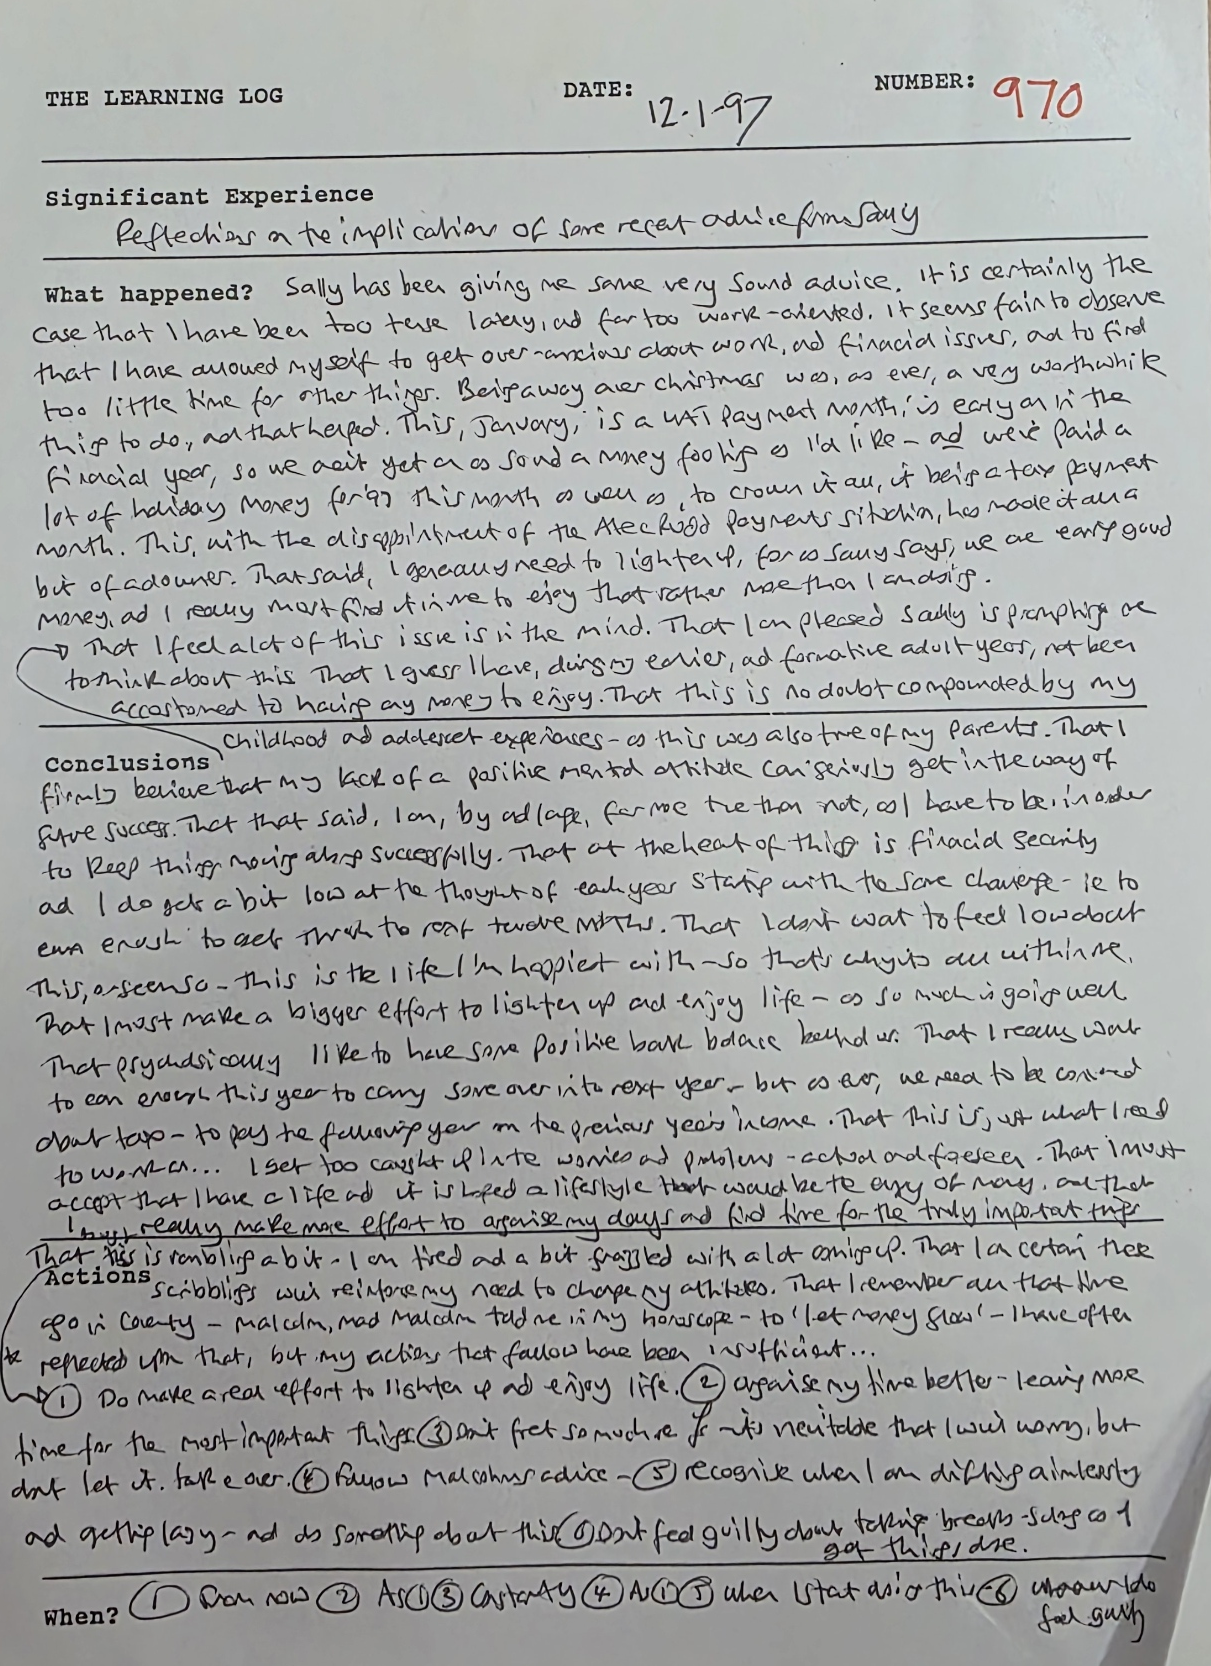 THE LEARNING LOG DATE: 12-1-97 NUMBER: 970
Significant Experience
Reflections on the implications of some recent advice from Sally
What happened? Sally has been giving me some very sound advice. It is certainly the
case that I have been too tense lately, and far too work-oriented. It seems fair to observe
that I have allowed myself to get over-anxious about work, and financial issues, and to find
too little time for other things. Being away over Christmas was, as ever, a very worthwhile
thing to do, and that helped. This, January, is a VAT payment month, is early on in the
financial year, so we aren't yet on as sound a money footing as I'd like - and we've paid a
lot of holiday money for '97 this month as well as, to crown it all, it being a tax payment
month. This, with the disappointment of the Alec Rudd payments situation, has made it all a
bit of a downer. That said, I generally need to lighten up, for as Sally says, we are earning good
money, and I really must find it in me to enjoy that rather more than I am doing.
That I feel a lot of this issue is in the mind. That I am pleased Sally is prompting me
to think about this. That I guess I have, during my earlier, and formative adult years, not been
accustomed to having any money to enjoy. That this is no doubt compounded by my
childhood and adolescent experiences - as this was also true of my parents. That I
Conclusions
firmly believe that my lack of a positive mental attitude can seriously get in the way of
future success. That that said, I am, by and large, far more true than not, as I have to be, in order
to keep things moving along successfully. That at the heart of things is financial security
and I do get a bit low at the thought of each year starting with the same challenge - ie to
earn enough to get through to next twelve months. That I don't want to feel low about
this, or seem so - this is the life I'm happiest with - so that's why it's all within me.
That I must make a bigger effort to lighten up and enjoy life - as so much is going well
That psychologically I like to have some positive bank balance behind us. That I really want
to earn enough this year to carry some over into next year - but as ever, we need to be concerned
about tax - to pay the following year on the previous year's income. That this is just what I need
to work on... I get too caught up into worries and problems - actual and foreseen. That I must
accept that I have a life and it is hoped a lifestyle that would be the envy of many, and that
I must really make more effort to organise my days and find time for the truly important things
That this is rambling a bit - I am tired and a bit frazzled with a lot coming up. That I am certain these
Actions scribblings will reinforce my need to change my attitudes. That I remember all that time
ago in Coventry - Malcolm, mad Malcolm told me in my horoscope - to 'let money flow' - I have often
reflected upon that, but my actions that follow have been insufficient...
① Do make a real effort to lighten up and enjoy life. ② Organise my time better - leaving more
time for the most important things ③ Don't fret so much re £ - it's inevitable that I will worry, but
don't let it take over. ④ Follow Malcolm's advice - ⑤ recognise when I am drifting aimlessly
and getting lazy - and do something about this ⑥ Don't feel guilty about taking breaks - so long as I
get things done.
When? ① From now ② As ① ③ Constantly ④ As ① ⑤ When I start doing this - ⑥ whenever I do
feel guilty